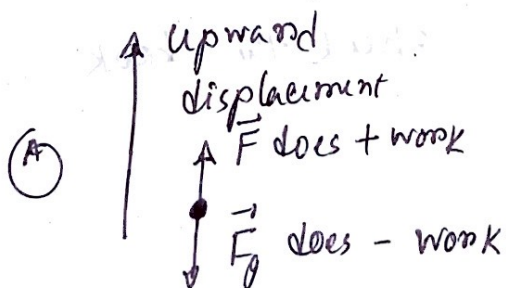 upward
displacement
A
F⃗ does + work
F⃗g does - work